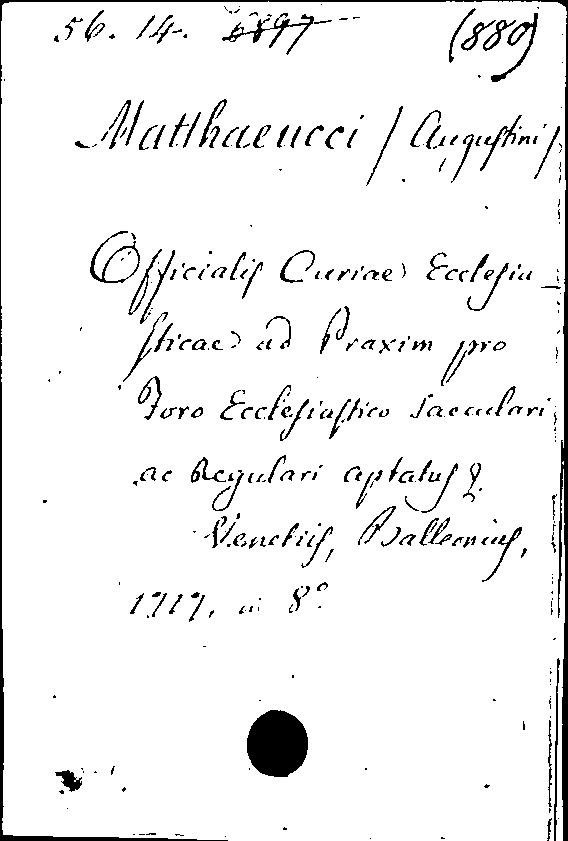 56. 14. 6897 (880)
Matthaeucci / Augustini /
Officialis Curiae Ecclesia-
sticae ad Praxim pro
Foro Ecclesiastico saeculari
ac Regulari aptatus &.
Venetiis, Balleonius,
1717, in 8°